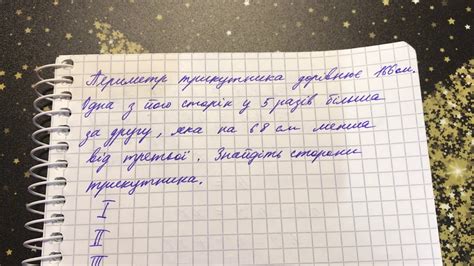 Периметр трикутника дорівнює 166 см.
Одна з його сторін у 5 разів більша
за другу, яка на 68 см менша
від третьої. Знайдіть сторони
трикутника.
I
II
III